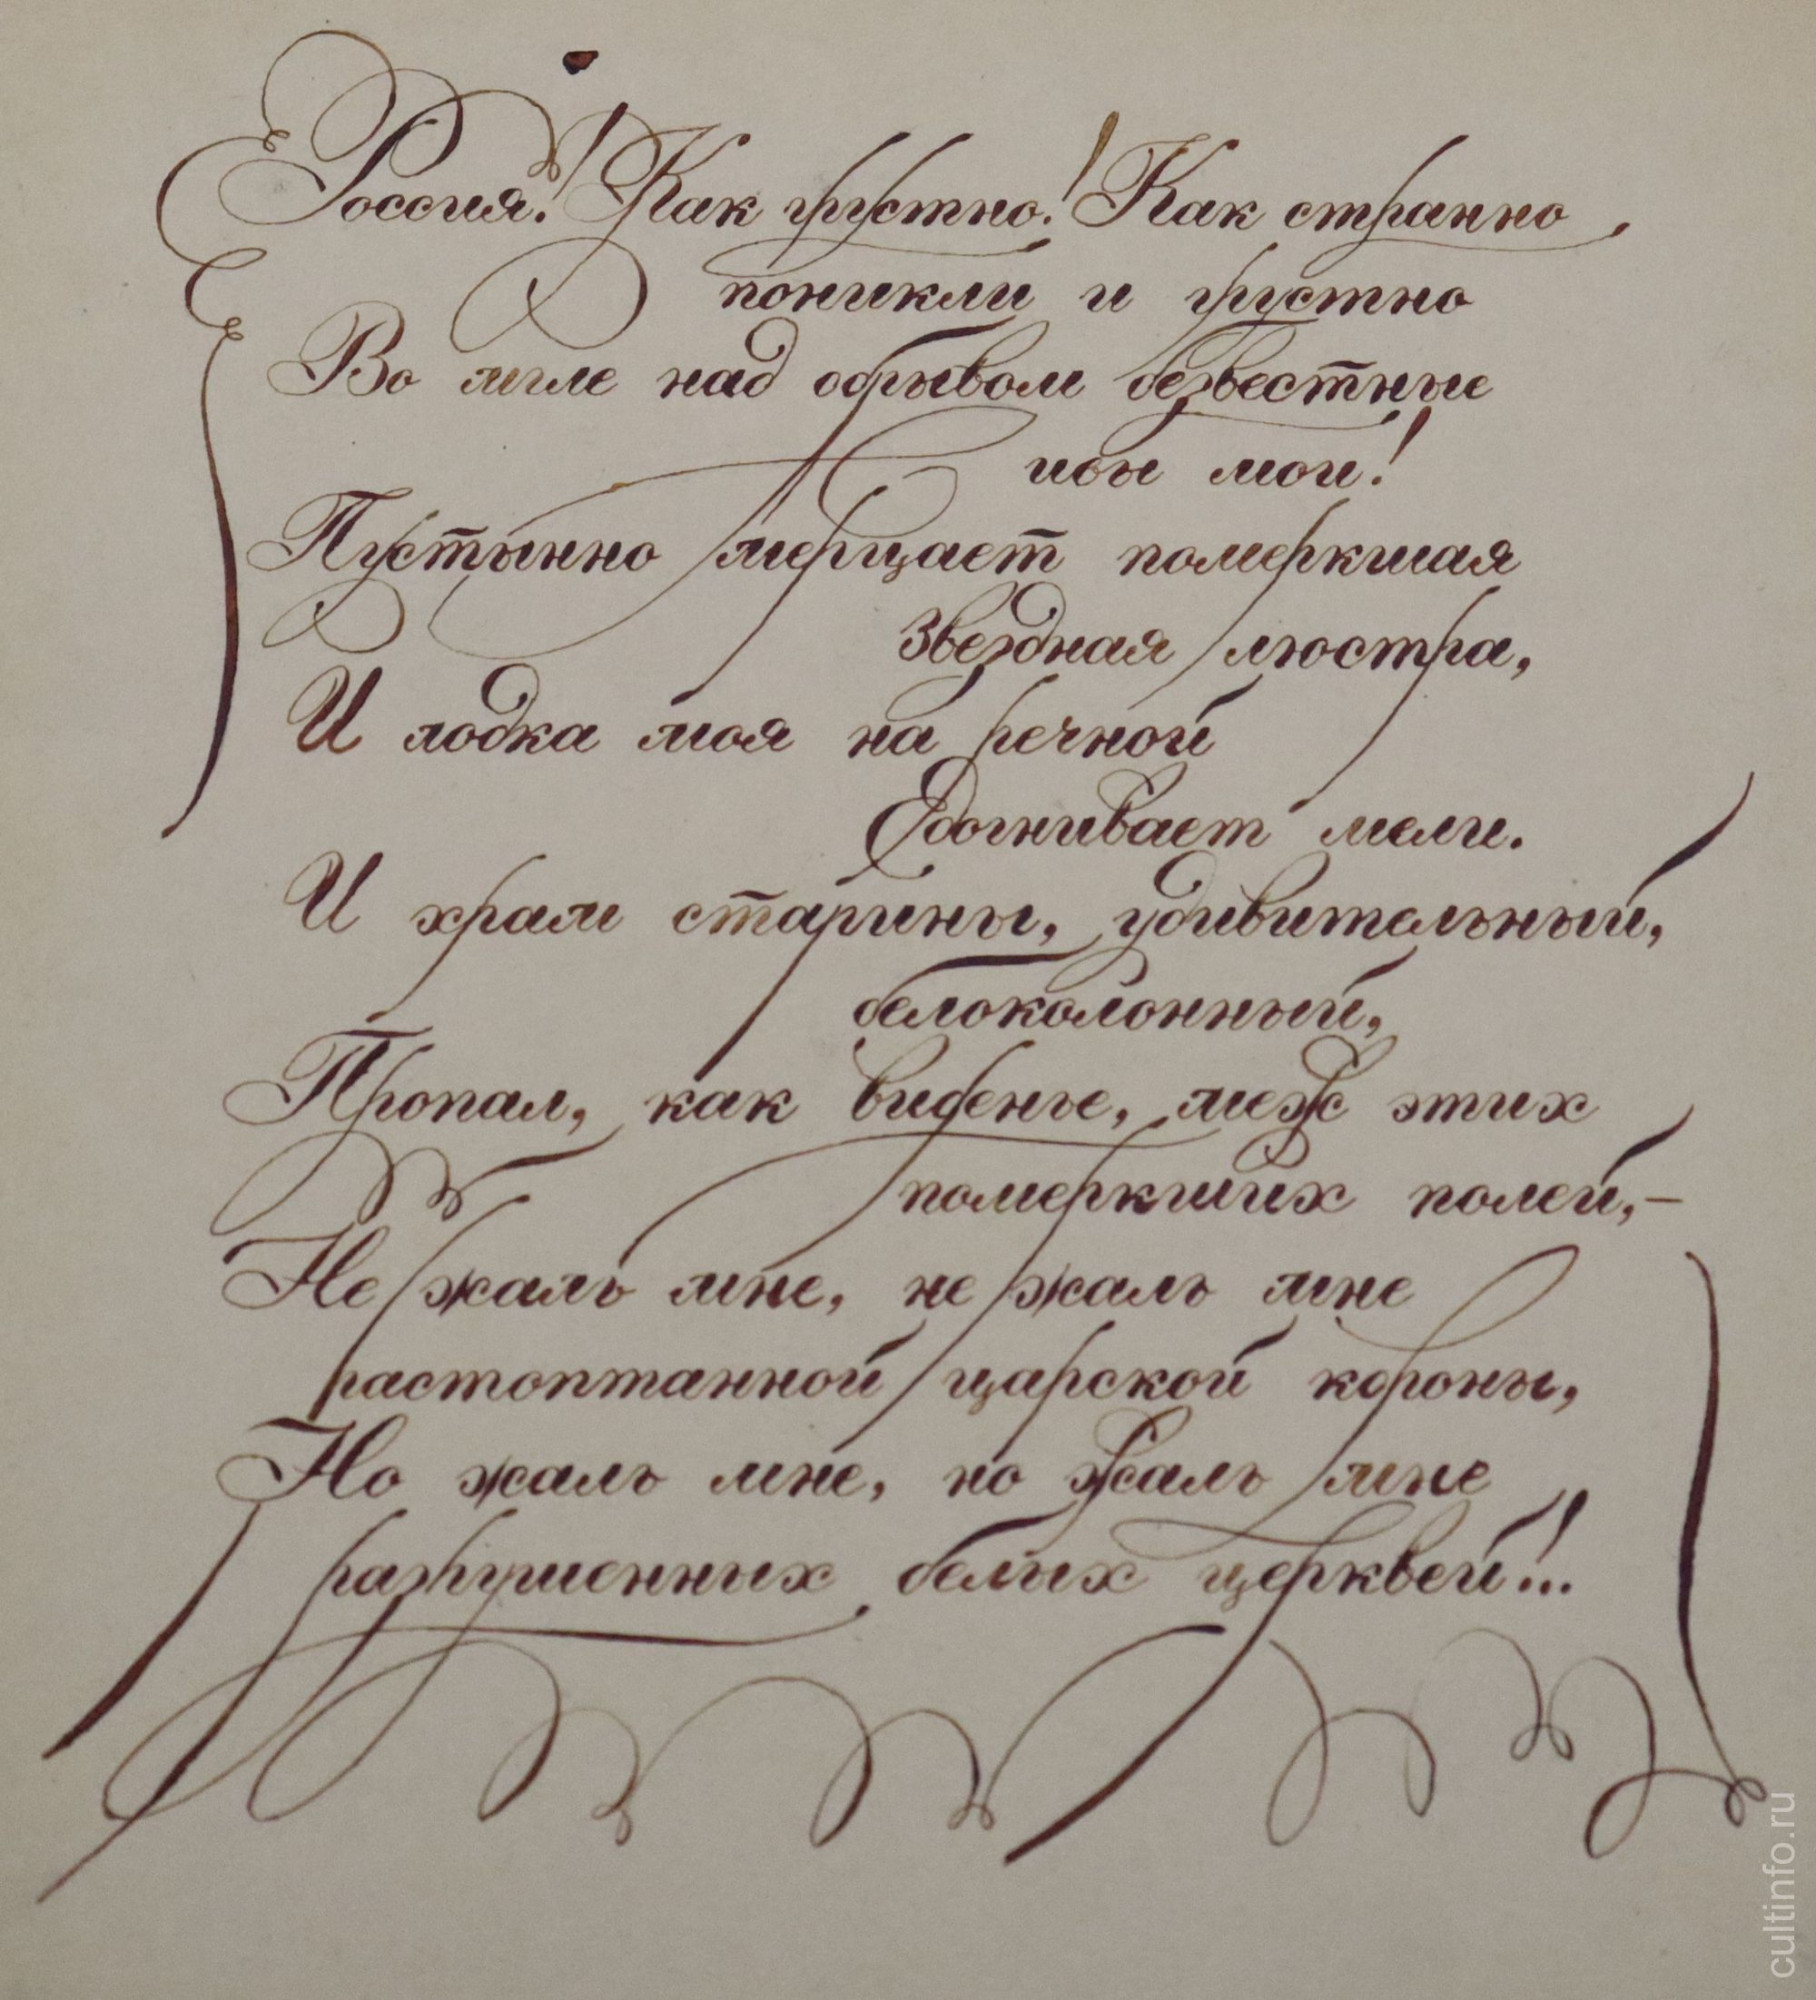 Россия! Как грустно! Как странно
поникли и грустно
Во мгле над обрывом безвестные
ивы мои!
Пустынно мерцает померкшая
звездная люстра,
И лодка моя на речной
догнивает мели.
И храм старины, удивительный,
белоколонный,
Пропал, как виденье, меж этих
померкших полей,-
Не жаль мне, не жаль мне
растоптанной царской короны,
Но жаль мне, но жаль мне
разрушенных белых церквей!..
cultinfo.ru